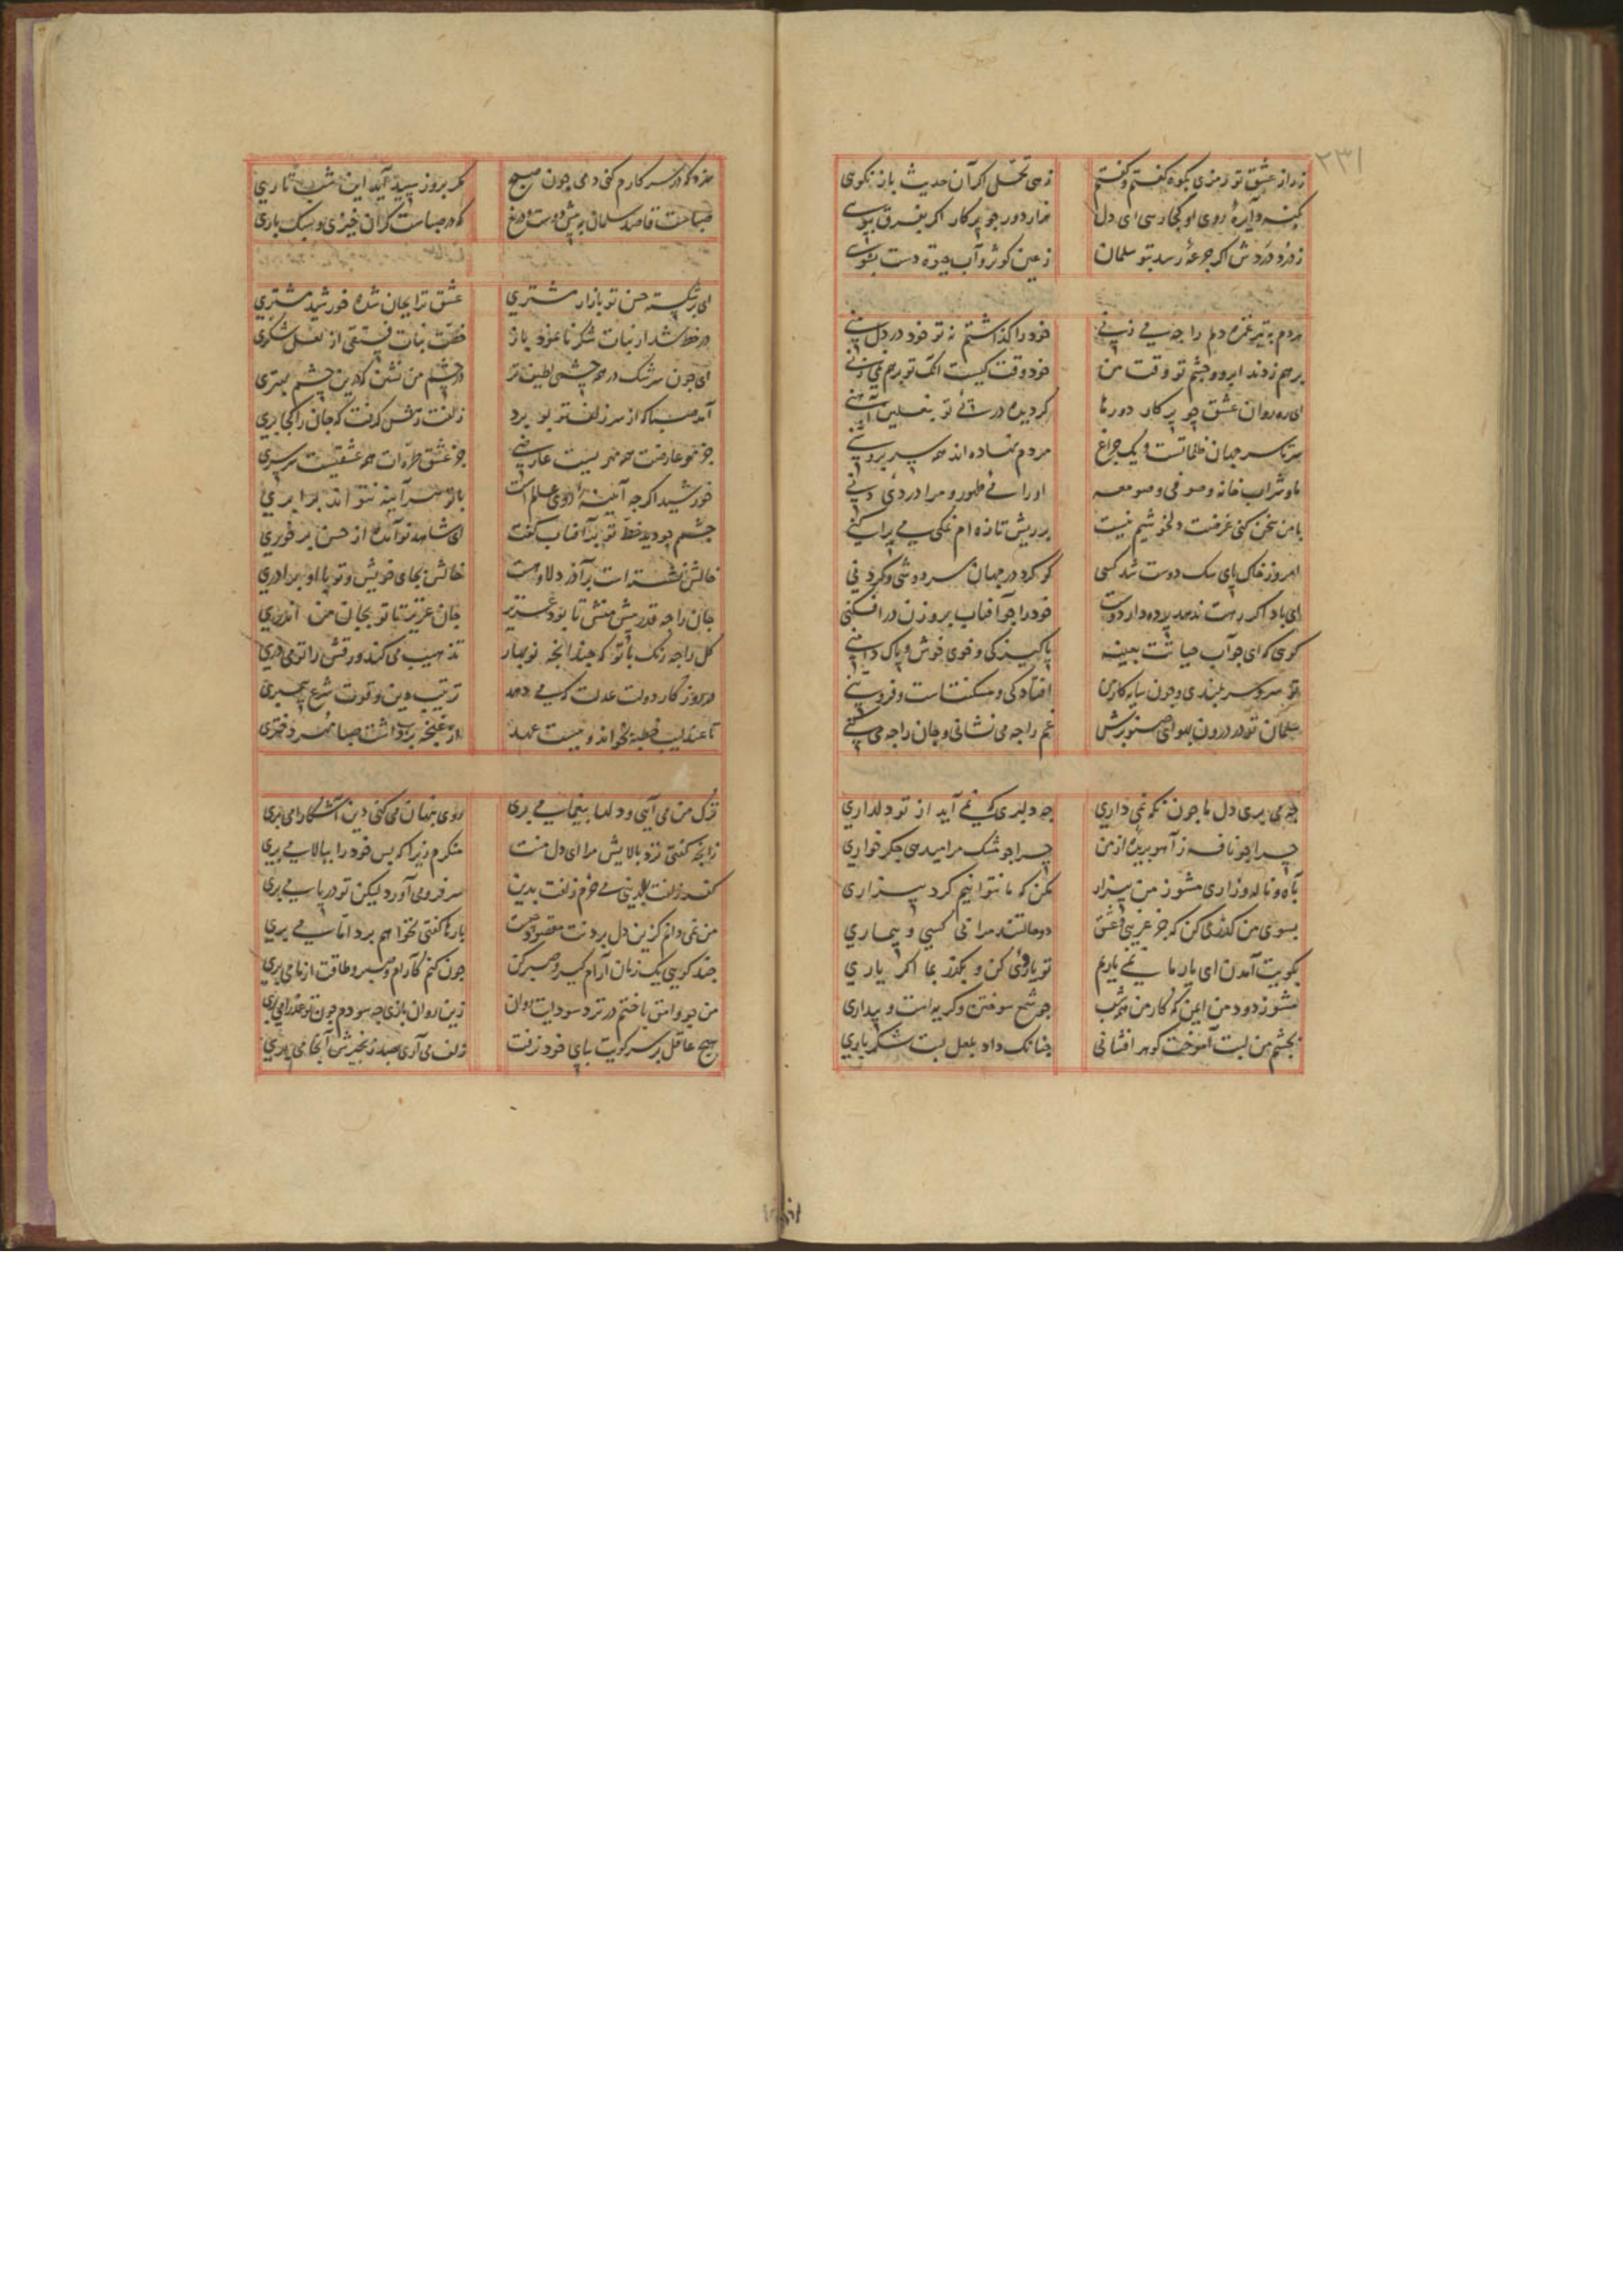 ۲۳۱
ز راز عشق تو رمزی بکوه گفتم و گفتم زهی تحمل اگر آن حدیث باز نگوی
کسه دایرهٔ روی او کجا رسی ای دل هزار دور چو پرکار اگر بفرق بپویی
ز درد دردش اگر جرعهٔ رسد بتو سلمان ز عین کوثر و آب حیوة دست بشویی
هر دم به تیر غمزه دلم را چه می زنی خود را گذاشتم نه تو خود در دل منی
برهم زدند ابرو و چشم تو وقت من خود وقت کیست آنک تو برهم نمی زنی
ای ره روان عشق چو پرکار دورها گردیده در پی تو بنعلین آهنی
سرتاسر جهان ظلماتست و یک چراغ مردم نهاده اند همه سر بروشنی
ما و شراب خانه و صوفی و صومعه او را می طهور و مرا دردی دنی
با من سخن کنی غرضت دلخوشیم نیست بر ریش تازه ام نمکی می پراکنی
امروز خاک پای سگ دوست شد کسی کو کرد در جهان سر دوشی و گردنی
ای باد اگر رهت ندهد پرده دار دوست خود را چو آفتاب بروزن در افکنی
گوی که ای چو آب حیاتت بعینه پاکیزگی و خوی خوش و پاک دامنی
تو سرو سربلندی و چون سایه کار من افتادگی و مسکنت است و فروتنی
سلمان تو در درون بهوای صنوبرش غم را چه می نشانی و جان را چه می کنی
چه می بری دل ما چون نگه نمی داری چه دلبری که نمی آید از تو دلداری
چرا چو نافه ز آهو بریدهٔ از من چرا چو مشک مرا میدهی جگر خواری
بآه و ناله و زاری مشو ز من بیزار مکن که ما نتوانیم کرد بیزاری
بسوی من گذری کن که جز غریبی و عشق دو حالتند مرا بی کسی و بیماری
بکویت آمدن ای یار ما نمی یاریم تو یاریی کن و بگذر بما اگر یاری
مشو ز دود من ایمن که کار من همه شب چو شمع سوختن و گریه است و بیداری
بچشم من لبت آموخت گوهر افشانی چنانک داد بلعل لبت شکر باری
مزد که در سر کارم کنی دمی چون صبح مگر بروز سپید آید این شب تاری
صباحت قاصد سلمان به پیش دوست دریغ که در صباست گران خیزی و سبک باری
ای شکسته حسن تو بازار مشتری عشق ترا بجان شده خورشید مشتری
در خط شد از نبات شکر تا غزد باز خطت نبات فستقی از لعل شکری
ای چون سرشک در همه چشمی لطیف تر در چشم من نشین که درین چشم بهتری
آمد صبا که از سر زلف تو بو برد زلفت رهش گرفت که جان را کجا بری
جز نحو عارضت همه مهریست عارضی جز عشق طره ات همه عشقیست سرسری
خورشید اگرچه آینهٔ روی عالم است با تو بهر آینه نتواند برابری
چشمم چو دید خط تو بر آفتاب گفت ای شاهد نو آمده از حسن بر خوری
خالش نشسته است بر آذر دلاورست خالش بجای خویش و تو با او برادری
جان را چه قدر پیش منش تا بود عزیز جان عزیز تا تو بجان من اندری
گل را چه رنگ با تو که چندانچه نوبهار تذهیب می کند ورقش را تو می دری
در روزگار دولت عدلت که می دهد ترتیب دین و قوت شرع پیمبری
تا عندلیب خطبه نخواند و نبست عهد از غنچه بر نداشت صبا مهر دختری
ترک من می آیی و دلها بیغما می بری روی پنهان می کنی دین آشکارا می بری
زانچه گفتی نزد بالایش مرا ای دل منت منکرم زیرا که بس خود را ببالا می بری
گفت زلفت می خرم زلفت بدین سر فرو می آورد لیکن تو در پا می بری
من نمی دانم کزین دل بردنت مقصود چیست بارها گفتی نخواهم برد اما می بری
چند گویی یک زمان آرام گیر و صبر کن چون کنم کآرام و صبر و طاقت از ما می بری
من چو وامق باختم در نرد سودایت روان زین روان بازی چه سودم چون تو عذرا می بری
هیچ عاقل بر سر کویت بپای خود نرفت زلف می آری بصد زنجیرش آنجا می بری